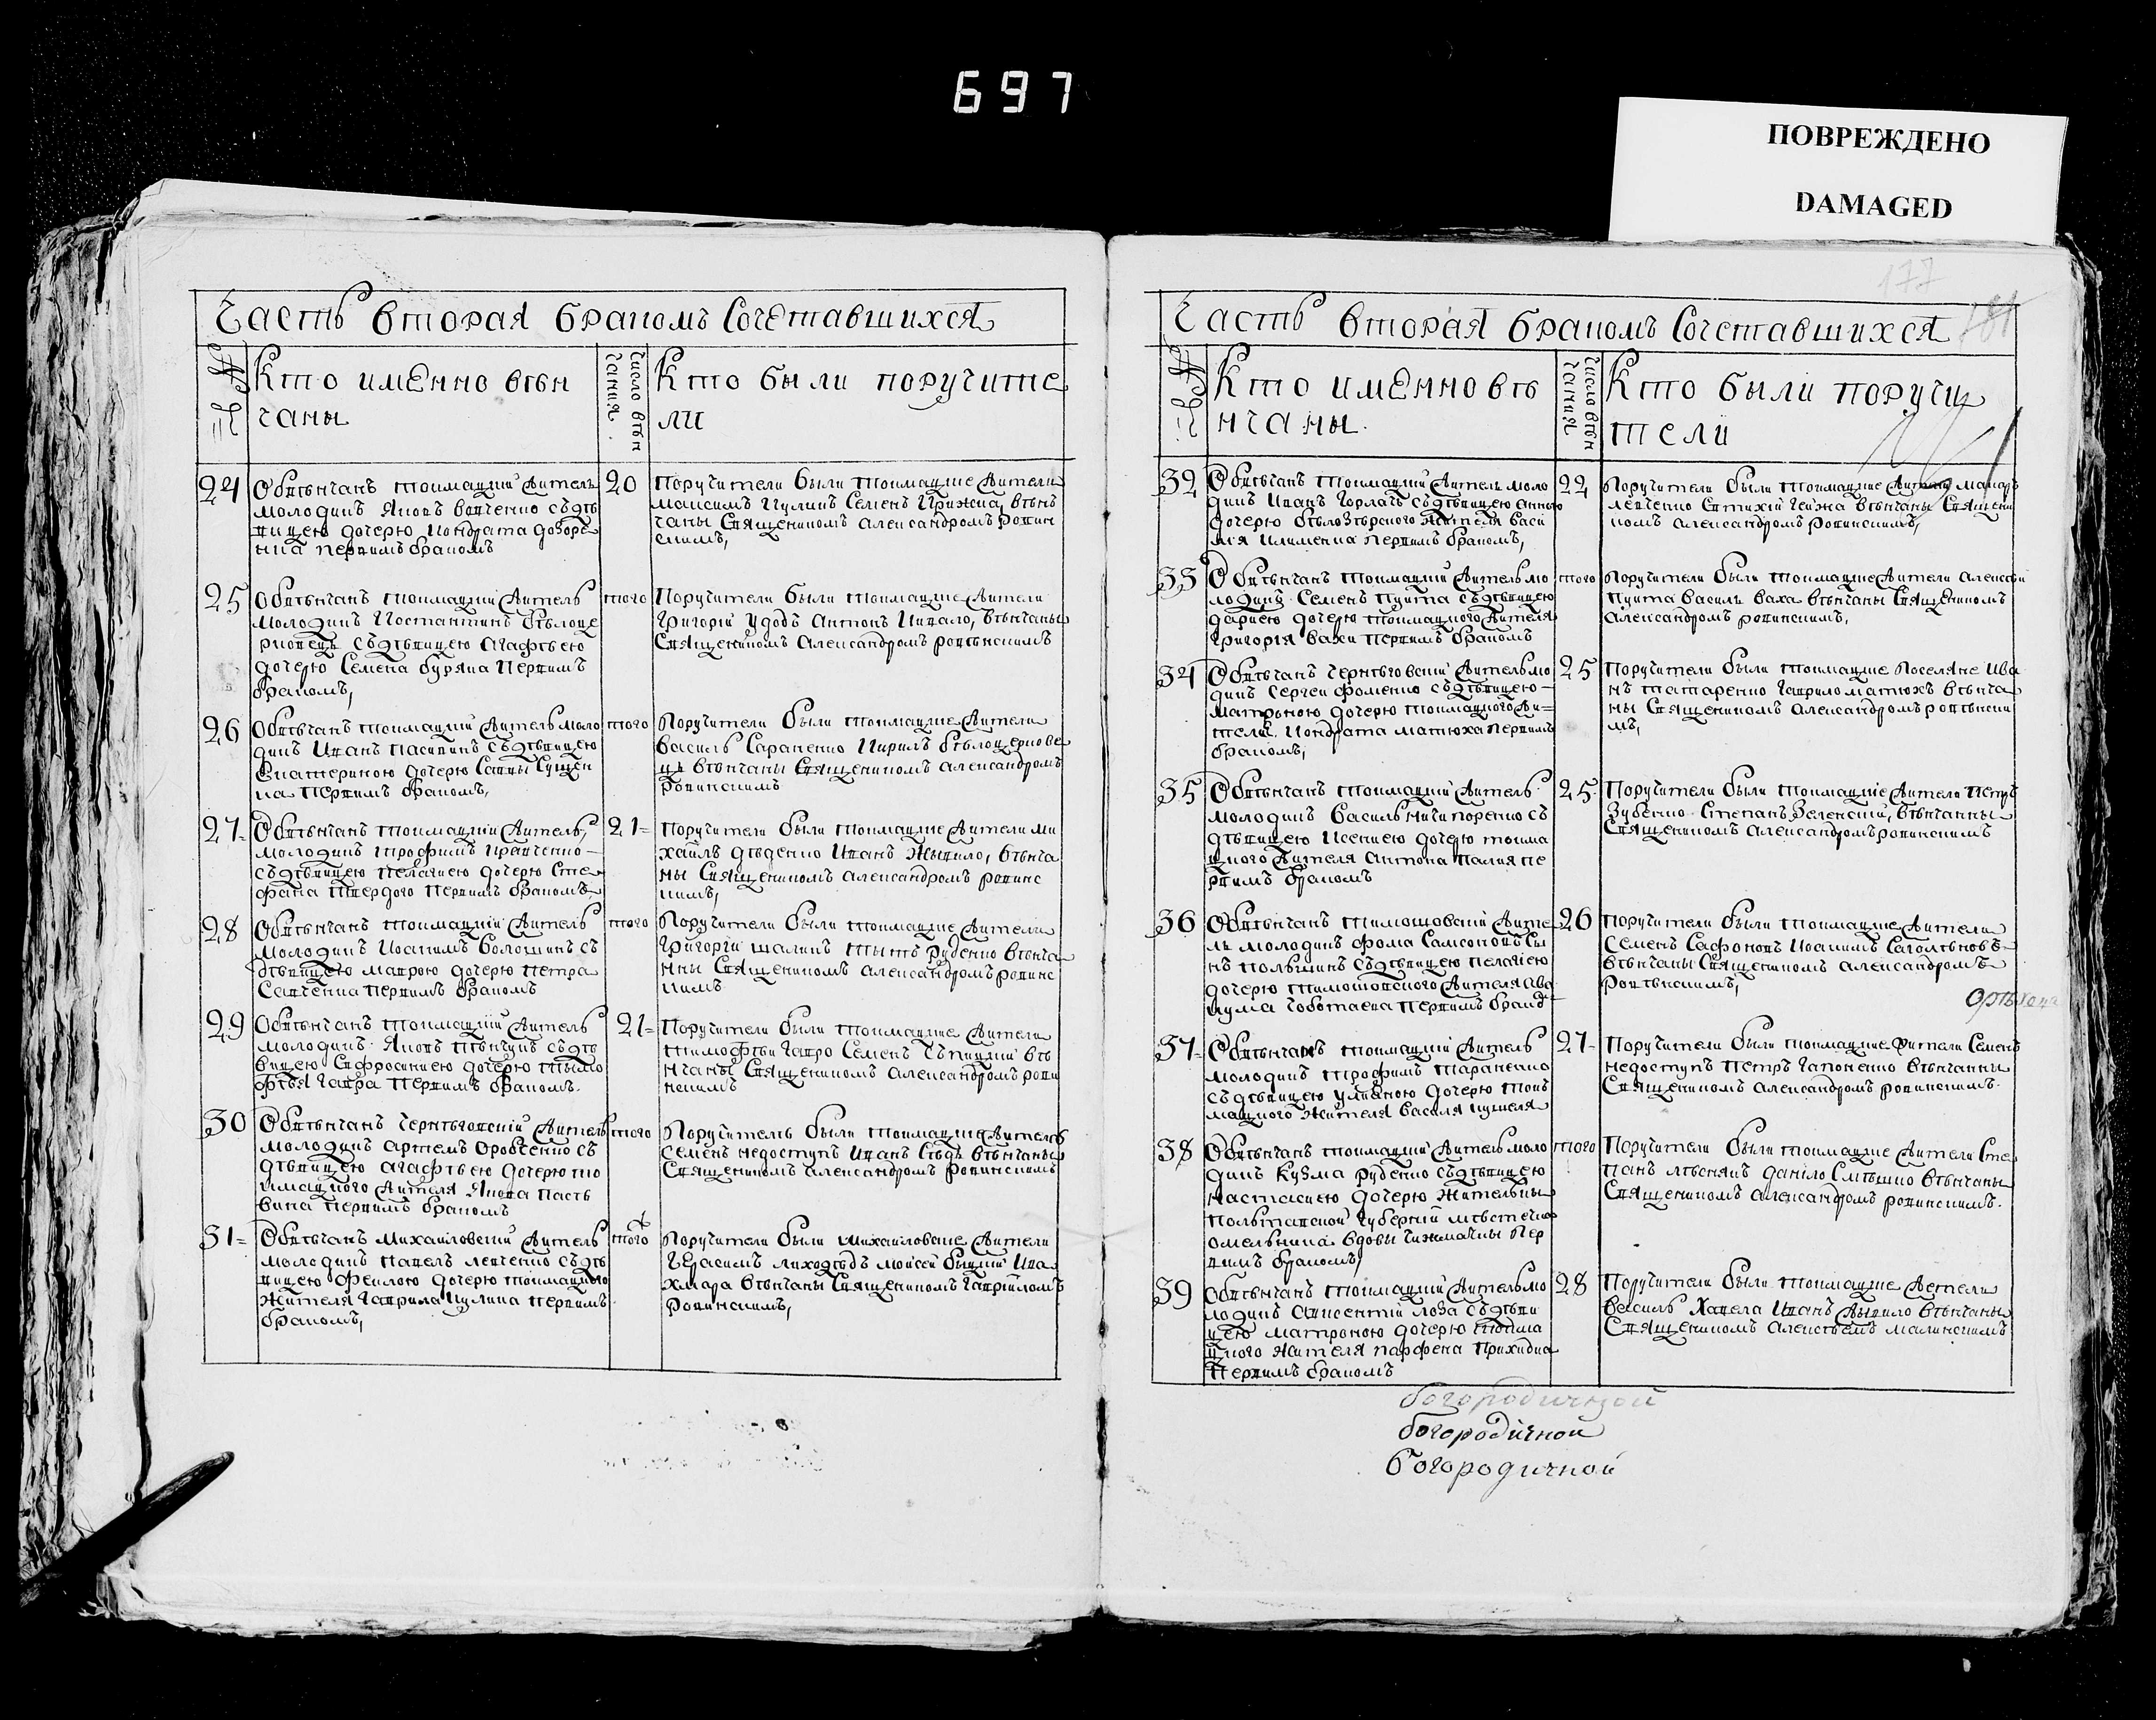 697
ПОВРЕЖДЕНО
DAMAGED
Часть вторая бракомъ Сочетавшихся
Кто имЕнно вѣн
чаны
число вѣн
чания
Кто были поручите
ли
24
Обвѣнчанъ токмацкий житель
молодикъ Яковъ вовченко съ дѣ
вицею дочерю Кондрата
первимъ бракомъ
20
Поручители были токмацкие жители
Максимъ Куликъ Семенъ вѣнъ
чаны Священикомъ александромъ ровин
скимъ,
25
Обвѣнчанъ токмацкий житель
молодикъ Костантинъ бѣлоце
рковецъ съ дѣвицею агафѣею
дочерю Семена буряка первимъ
бракомъ,
того
Поручители были токмацкие жители
григорій удодъ антонъ вѣнчаны
Священикомъ александромъ ровѣнскимъ
26
Обвѣнчанъ токмацкий житель моло
дикъ Иванъ пасикикъ съ дѣвицею
Екатериною дочерю Саввы Сущен
ка первимъ бракомъ,
того
Поручители были токмацкие жители
василь Сараненко Кирилъ бѣлоцеркове
цъ вѣнчаны Священикомъ александромъ
ровинскимъ
27
Обвѣнчанъ токмацкий житель,
молодикъ трофимъ кравченко
съ дѣвицею пелагиею дочерю Сте
фана твердого первимъ бракомъ
21
Поручители были токмацкие жители ми
хайлъ дѣденко Иванъ вѣнча
ны Священикомъ александромъ ровинс
кимъ,
28
Обвѣнчанъ токмацкий житель
молодикъ Иоакимъ волошинъ съ
дѣвицею маврою дочерю петра
Савченка первимъ бракомъ
того
Поручители были токмацкие жители
григорій шаликъ титъ руденко вѣнча
нны Священикомъ александромъ ровинс
кимъ
29
Обвѣнчанъ токмацкий житель
молодикъ Яковъ съ дѣ
вицею Евфросиниею дочерю тымо
фѣя гавра первимъ бракомъ.
21
Поручители были токмацкие жители
тимофѣй гавро Семенъ вѣ
нчаны Священикомъ александромъ рови
нскимъ
30
Обвѣнчанъ чернѣговский житель
молодикъ артемъ съ
дѣвицею агафѣею дочерю то
кмацкого жителя Якова пасѣ
вика первимъ бракомъ
того
Поручителѣ были токмацкие жители
Семенъ недоступъ Иванъ вѣнчаны
Священикомъ александромъ ровинскимъ
31
Обвѣнчанъ михайловский житель
молодикъ павелъ левченко съ дѣ
вицею феклою дочерю токмацкого
жителя гаврила Кулика первимъ
бракомъ,
того
Поручители были михайловские жители
герасимъ лиходѣдъ мойсей Ива
хмара вѣнчаны Священикомъ гаврииломъ
ровинскимъ,
177
Часть вторая бракомъ Сочетавшихся
Кто имЕнно вѣ
нчаны.
число вѣн
чания
Кто были поручи
тели
32
Обвѣнчанъ токмацкий житель моло
дикъ Иванъ горлачъ съ дѣвицею анною
дочерю бѣлозѣрского жителя васи
лія клименка первимъ бракомъ,
22
Поручители были токмацкие жители макаръ
левченко Евтихій вѣнчаны Священи
комъ александромъ ровинскимъ,
33
Обвѣнчанъ токмацкий житель мо
лодикъ Семенъ пунта съ дѣвицею
дариею дочерю токмацкого жителя
григория вахи первимъ бракомъ
того
Поручители были токмацкие жители алексѣй
пунта василь ваха вѣнчаны Священикомъ
александромъ ровинскимъ,
34
Обвѣнчанъ чернѣговский житель мо
дикъ Сергей фоменко съ дѣвицею
матроною дочерю токмацкого жи
теля Кондрата матюха первимъ
бракомъ,
25
Поручители были токмацкие поселяне ива
нъ татаренко гаврило матюхъ вѣнча
ны Священикомъ александромъ ровѣнски
мъ,
35
Обвѣнчанъ токмацкий житель
молодикъ василь ничипоренко съ
дѣвицею ксениею дочерю токма
цкого жителя антона палия пе
рвимъ бракомъ
25
Поручители были токмацкие жители петръ
Зубенко Степанъ Зеленский, вѣнчанны
Священикомъ александромъ ровинскимъ
36
Обвѣнчанъ тимошовский жите
ль молодикъ фома Самсоновъ Сы
нъ съ дѣвицею пелагиею
дочерю тимошовского жителя ава
кума чоботаева первимъ брако
26
Поручители были токмацкие жители
Семенъ Сафоновъ Иоакимъ
вѣнчаны Священикомъ александромъ
ровѣнскимъ,
37
Обвѣнчанъ токмацкий житель
молодикъ трофимъ тараненко
съ дѣвицею улияною дочерю ток
мацкого жителя василя кушеля
27
Поручители были токмацкие жители Семенъ
недоступъ петръ гапоненко вѣнчанны
Священикомъ александромъ ровинскимъ.
38
Обвѣнчанъ токмацкий житель моло
дикъ Кузма руденко съ дѣвицею
настасиею дочерю жительки
полѣтавской губерній мѣстечка
омельника вдовы пер
вимъ бракомъ,
того
Поручители были токмацкие жители Сте
панъ лѣснякъ данило Смѣшко вѣнчаны
Священикомъ александромъ ровинскимъ.
39
Обвѣнчанъ токмацкий житель мо
лодикъ авксентий лоза съ дѣви
цею матроною дочерю токма
цкого жителя парфена прихидка
первимъ бракомъ
28
Поручители были токмацкие жетели
василь Хавела Иванъ вѣнчаны
Священикомъ алексѣемъ малинскимъ
богородичной
богородичной
Богородичной